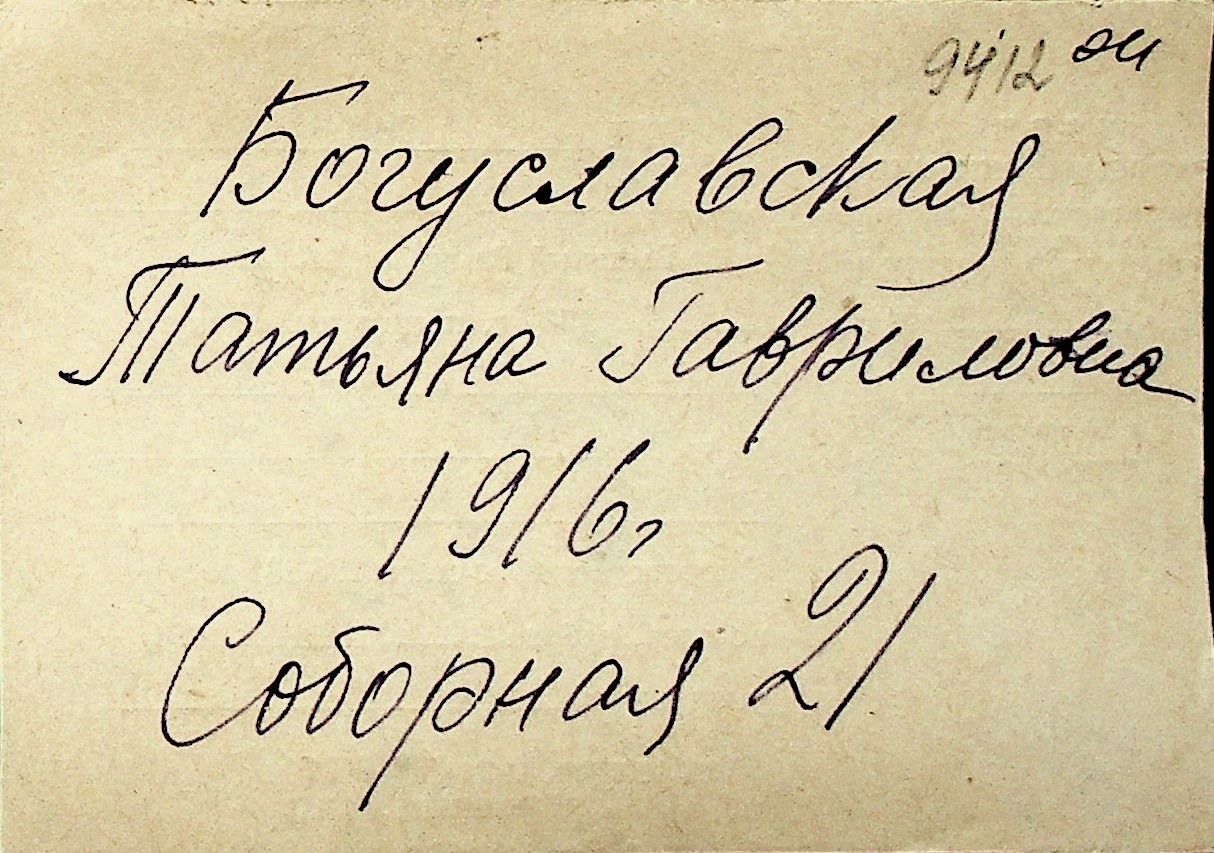 9412 эи
Богуславская
Татьяна Гавриловна
1916г
Соборная 21